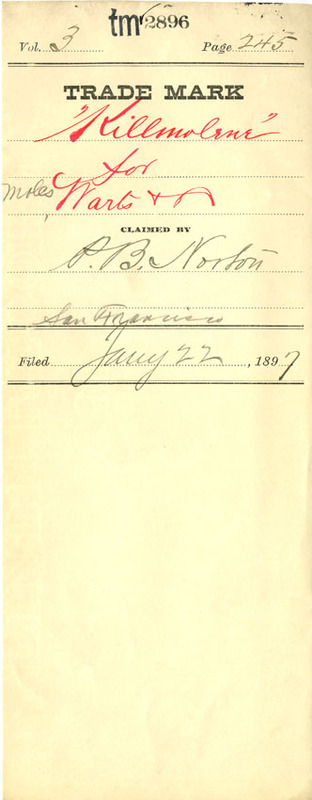 tm 2896
Vol. 3 Page 245
TRADE MARK
"Killmolene"
for
Moles, Warts &
CLAIMED BY
P. B. Norton
San Francisco
Filed Jany 22, 1897